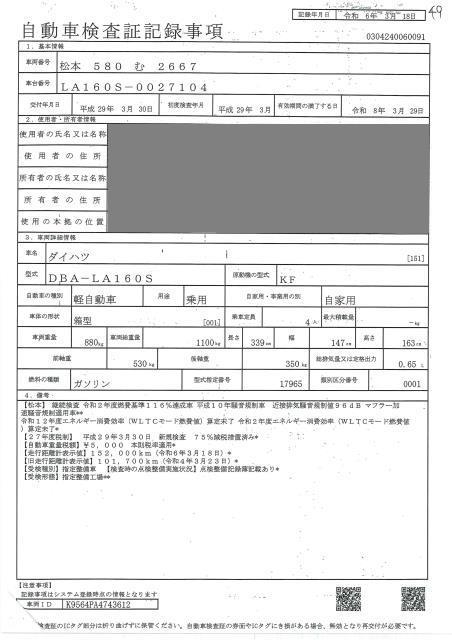 49
記録年月日 令和 6年 3月 18日
自動車検査証記録事項
0304240060091
1．基本情報
車両番号 松本 580 む 2667
車台番号 LA160S-0027104
交付年月日 平成 29年 3月 30日 初度検査年月 平成 29年 3月 有効期間の満了する日 令和 8年 3月 29日
2．使用者・所有者情報
使用者の氏名又は名称
使用者の住所
所有者の氏名又は名称
所有者の住所
使用の本拠の位置
3．車両詳細情報
車名 ダイハツ [151]
型式 DBA-LA160S 原動機の型式 KF
自動車の種別 軽自動車 用途 乗用 自家用・事業用の別 自家用
車体の形状 箱型 [001] 乗車定員 4人 最大積載量 -kg
車両重量 880kg 車両総重量 1100kg 長さ 339cm 幅 147cm 高さ 163cm
前軸重 530kg 後軸重 350kg 総排気量又は定格出力 0.65 L
燃料の種類 ガソリン 型式指定番号 17965 類別区分番号 0001
4．備考
【松本】 継続検査 令和2年度燃費基準116％達成車 平成10年騒音規制車 近接排気騒音規制値96dB マフラー加
速騒音規制適用車**
令和12年度エネルギー消費効率(WLTCモード燃費値)算定未了 令和2年度エネルギー消費効率(WLTCモード燃費値
)算定未了*
【27年度税制】 平成29年3月30日 新規検査 75％減税措置済み*
【自動車重量税額】¥5,000 本則税率適用*
【走行距離計表示値】152,000km(令和6年3月18日)*
【旧走行距離計表示値】101,700km(令和4年3月23日)*
【受検種別】指定整備車 【検査時の点検整備実施状況】点検整備記録簿記載あり*
【受検形態】指定整備工場**
【注意事項】
記録事項はシステム登録時点の情報となります
車両ID K9564PA4743612
検査証のICタグ部分は折り曲げずに保管ください。自動車検査証の券面やICタグにき損がある場合、無効となり再交付が必要です。